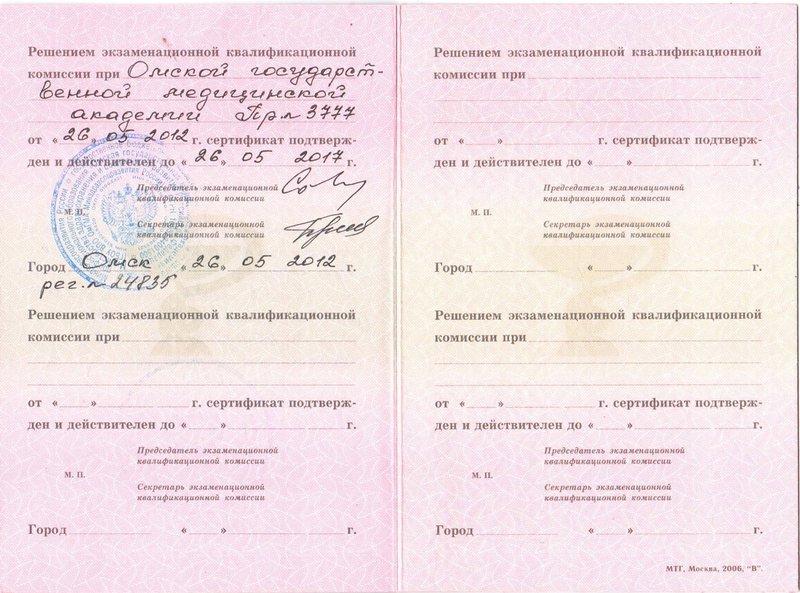 Решением экзаменационной квалификационной
комиссии при Омской государст-
венной медицинской
академии Пр № 3777
от «26» 05 2012 г. сертификат подтверж-
ден и действителен до «26» 05 2017 г.
Председатель экзаменационной
квалификационной комиссии
М. П.
Секретарь экзаменационной
квалификационной комиссии
Город Омск «26» 05 2012 г.
рег. № 24835
Решением экзаменационной квалификационной
комиссии при
от « » г. сертификат подтверж-
ден и действителен до « » г.
Председатель экзаменационной
квалификационной комиссии
М. П.
Секретарь экзаменационной
квалификационной комиссии
Город « » г.
Решением экзаменационной квалификационной
комиссии при
от « » г. сертификат подтверж-
ден и действителен до « » г.
Председатель экзаменационной
квалификационной комиссии
М. П.
Секретарь экзаменационной
квалификационной комиссии
Город « » г.
Решением экзаменационной квалификационной
комиссии при
от « » г. сертификат подтверж-
ден и действителен до « » г.
Председатель экзаменационной
квалификационной комиссии
М. П.
Секретарь экзаменационной
квалификационной комиссии
Город « » г.
МТГ, Москва, 2006, "В".